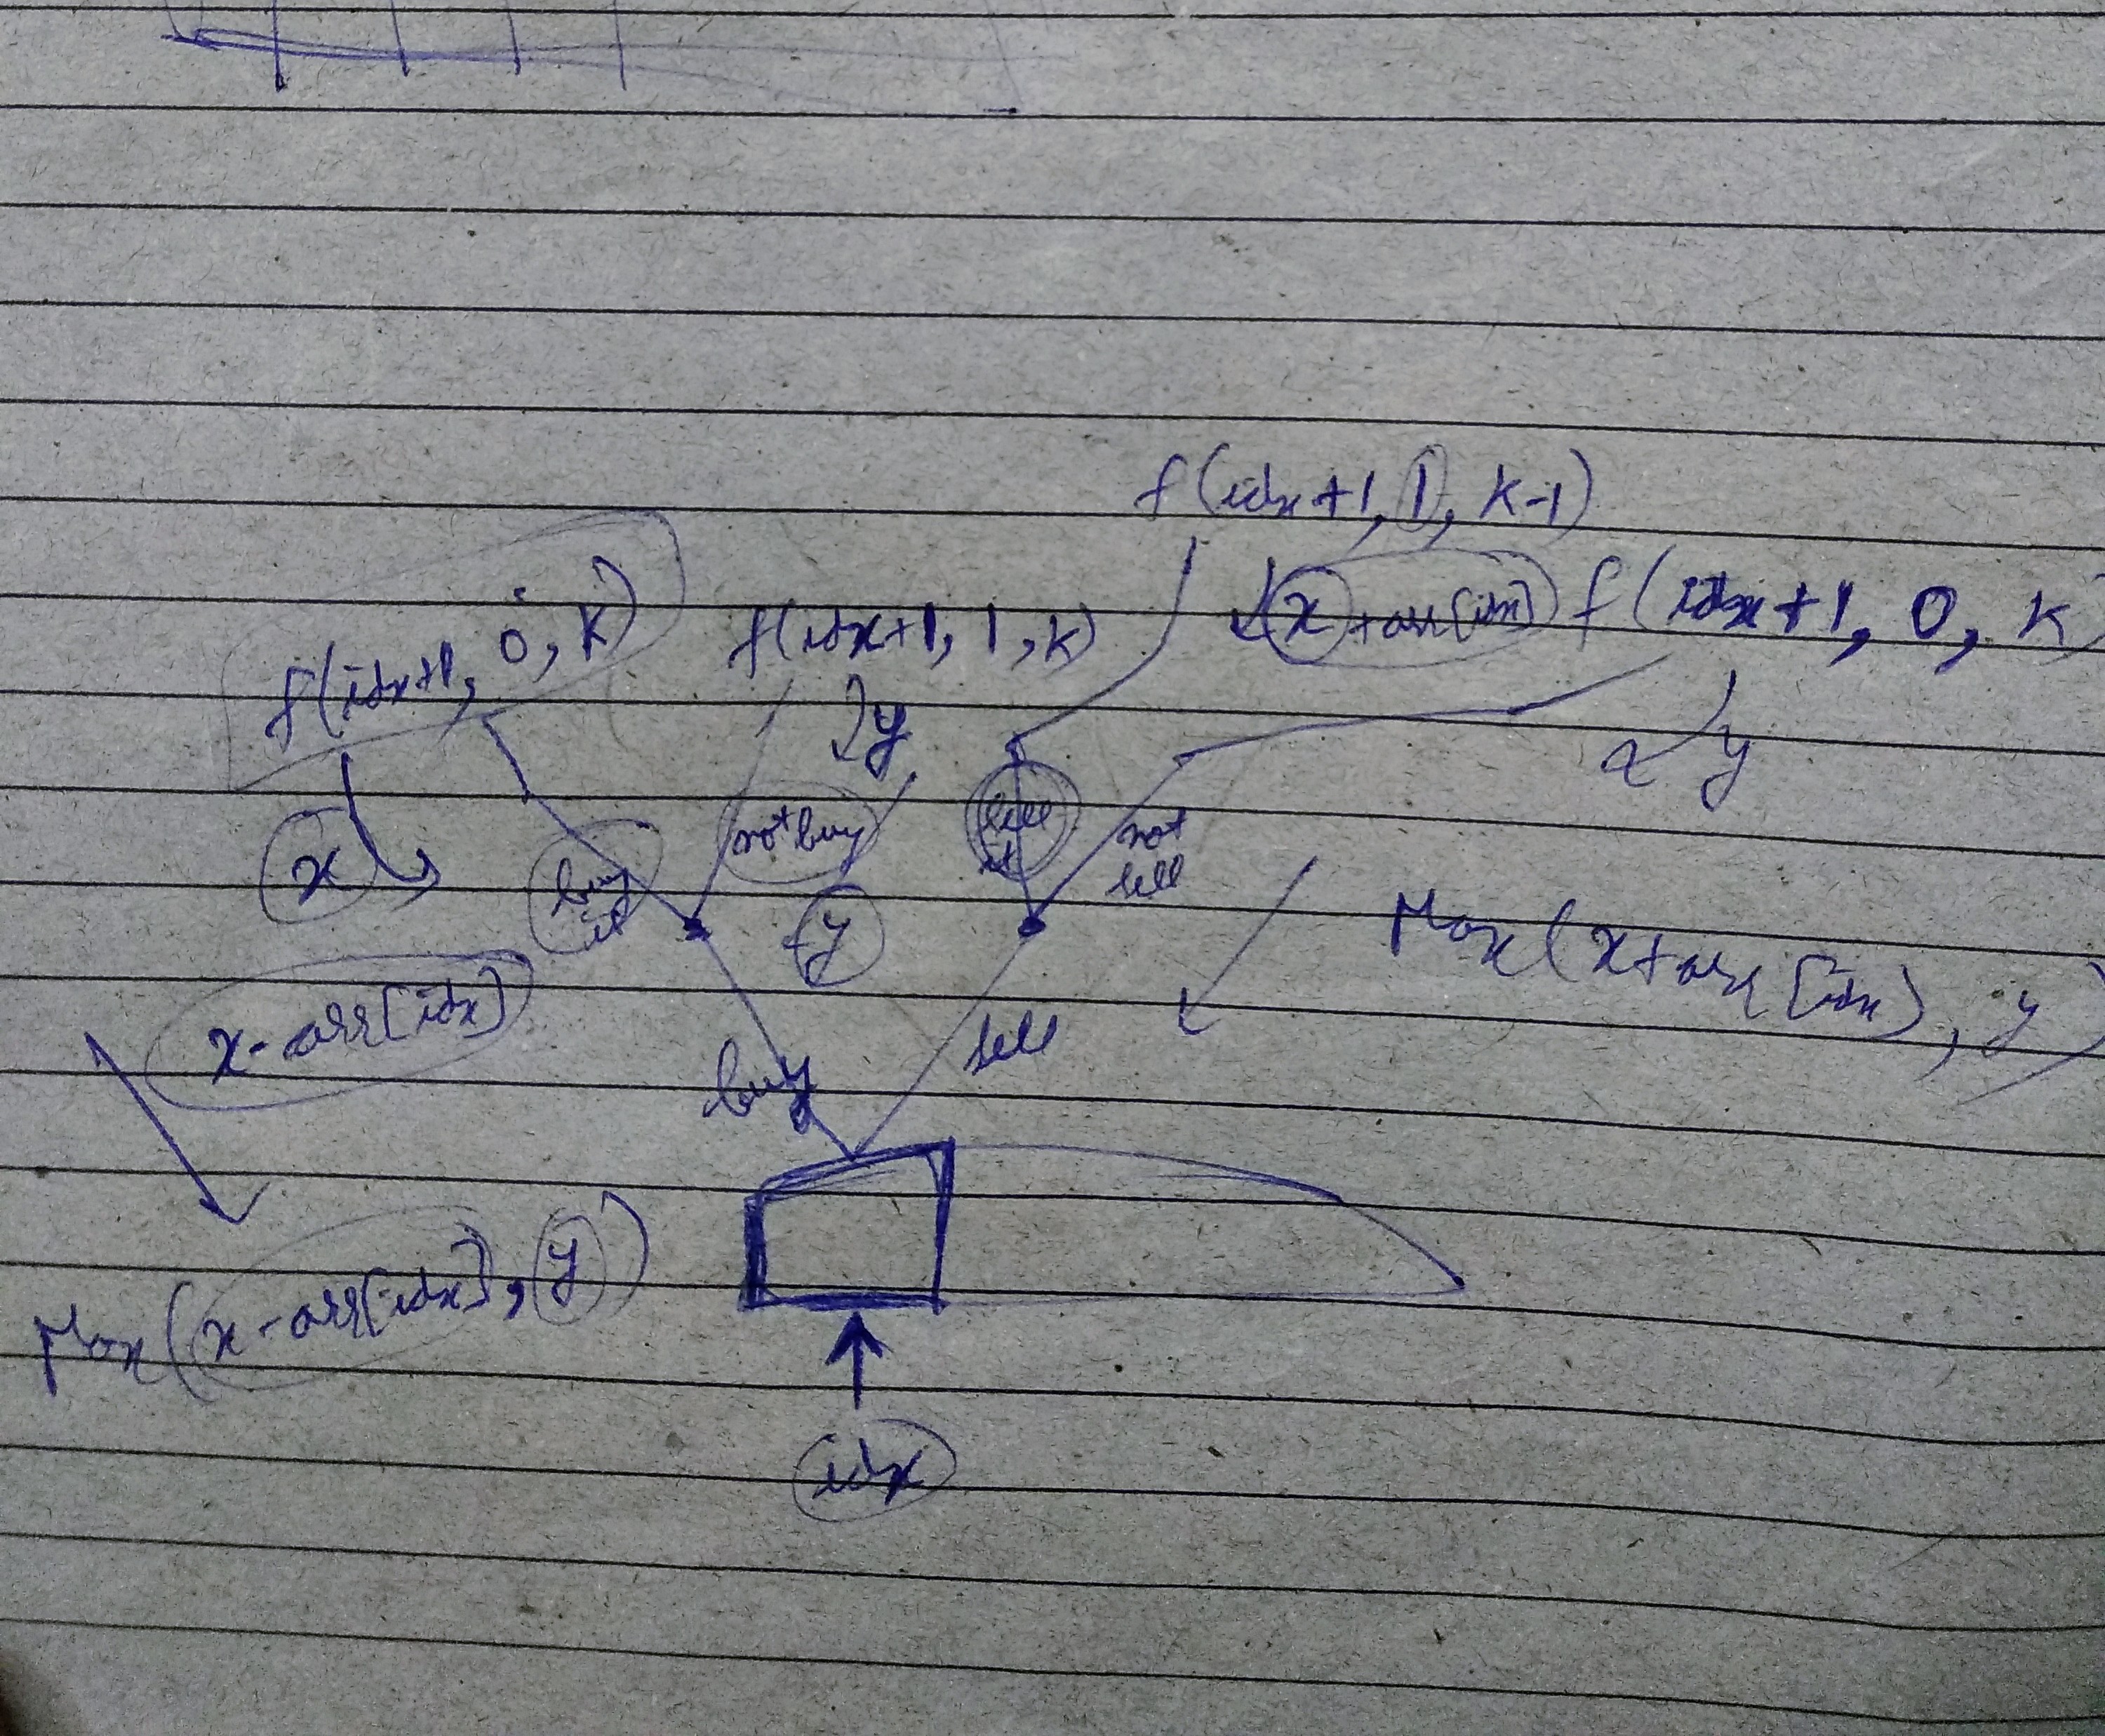 f(idx+1, 1, k-1)
f(idx+1, 0, k) f(idx+1, 1, k) x+arr[idx] f(idx+1, 0, k)
y y
x buy it not buy sell it not sell
y
x-arr[idx] Max(x+arr[idx], y)
buy sell
Max(x-arr[idx], y)
idx